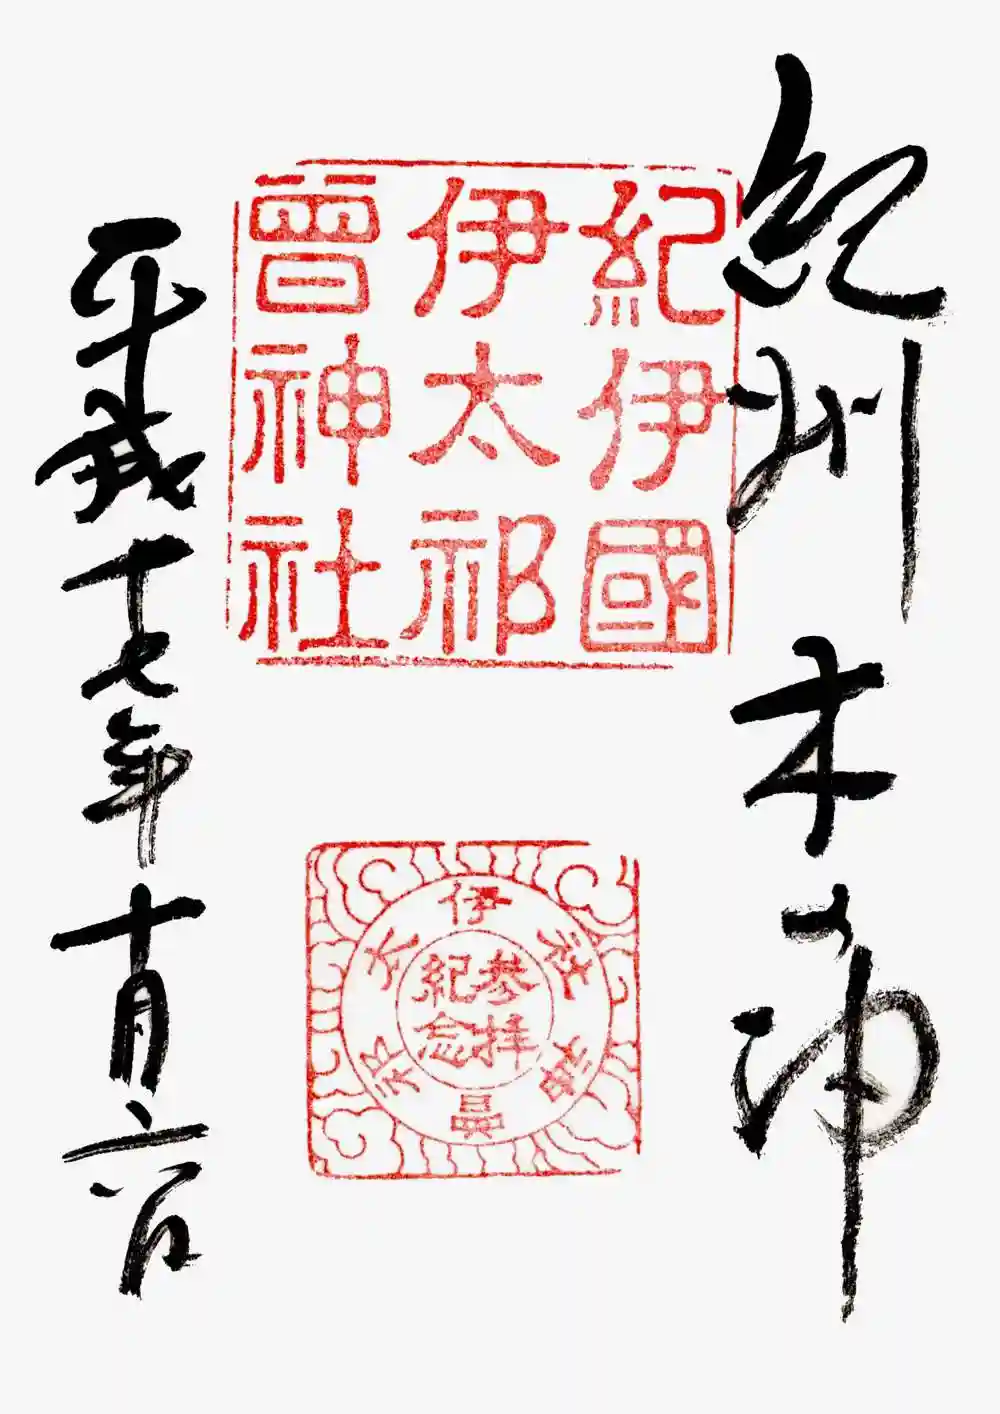 紀州木の神
紀伊國
伊太祁
曾神社
伊太祁曽神社
参拝
紀念
平成十七年十月六日